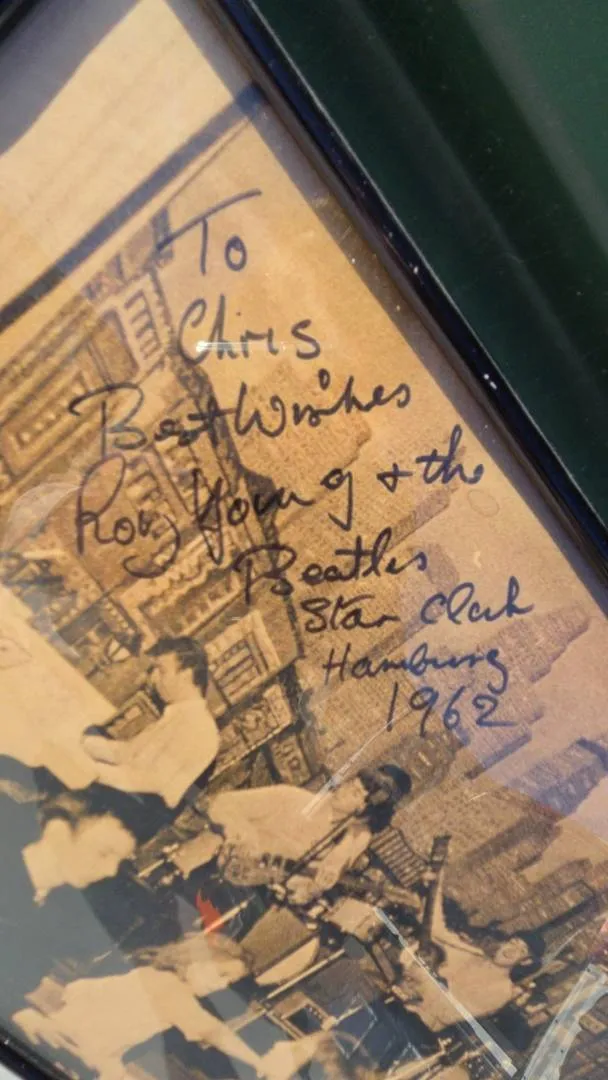 To
Chris
Best Wishes
Roy Young & the
Beatles
Star Club
Hamburg
1962